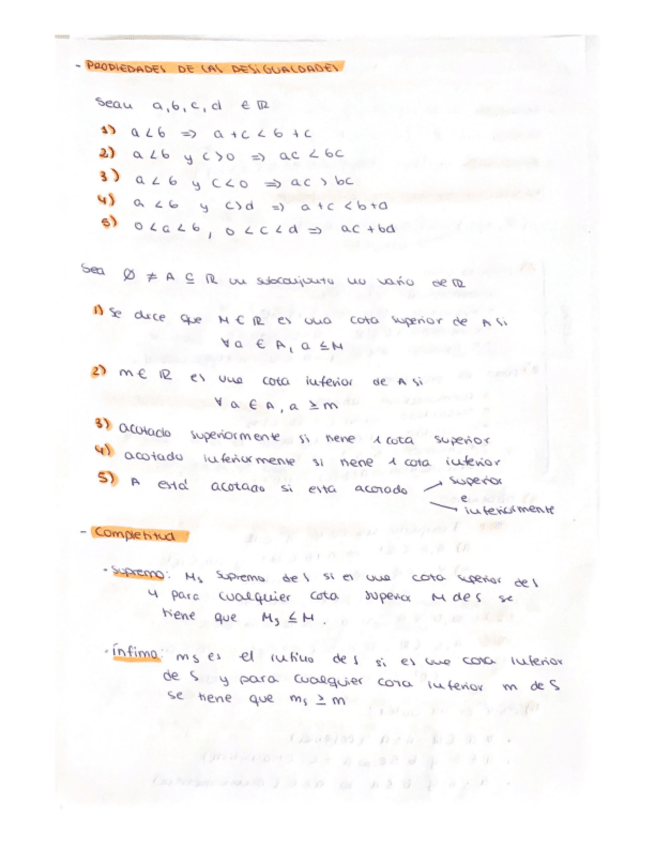 - PROPIEDADES DE LAS DESIGUALDADES
Sean a, b, c, d ∈ ℝ
1) a < b ⇒ a + c < b + c
2) a < b y c > 0 ⇒ ac < bc
3) a < b y c < 0 ⇒ ac > bc
4) a < b y c > d ⇒ a + c < b + d
5) 0 < a < b, 0 < c < d ⇒ ac + bd
Sea ∅ ≠ A ⊆ ℝ un subconjunto no vacío de ℝ
1) Se dice que M ∈ ℝ es una cota superior de A si
∀a ∈ A, a ≤ M
2) m ∈ ℝ es una cota inferior de A si
∀a ∈ A, a ≥ m
3) acotado superiormente si tiene 1 cota superior
4) acotado inferiormente si tiene 1 cota inferior
5) A está acotado si esta acotado → superior
e
→ inferiormente
- Completitud
· Supremo: Ms supremo de S si es una cota superior de S
y para cualquier cota superior M de S se
tiene que Ms ≤ M.
· ínfimo: ms es el ínfimo de S si es una cota inferior
de S y para cualquier cota inferior m de S
se tiene que ms ≥ m